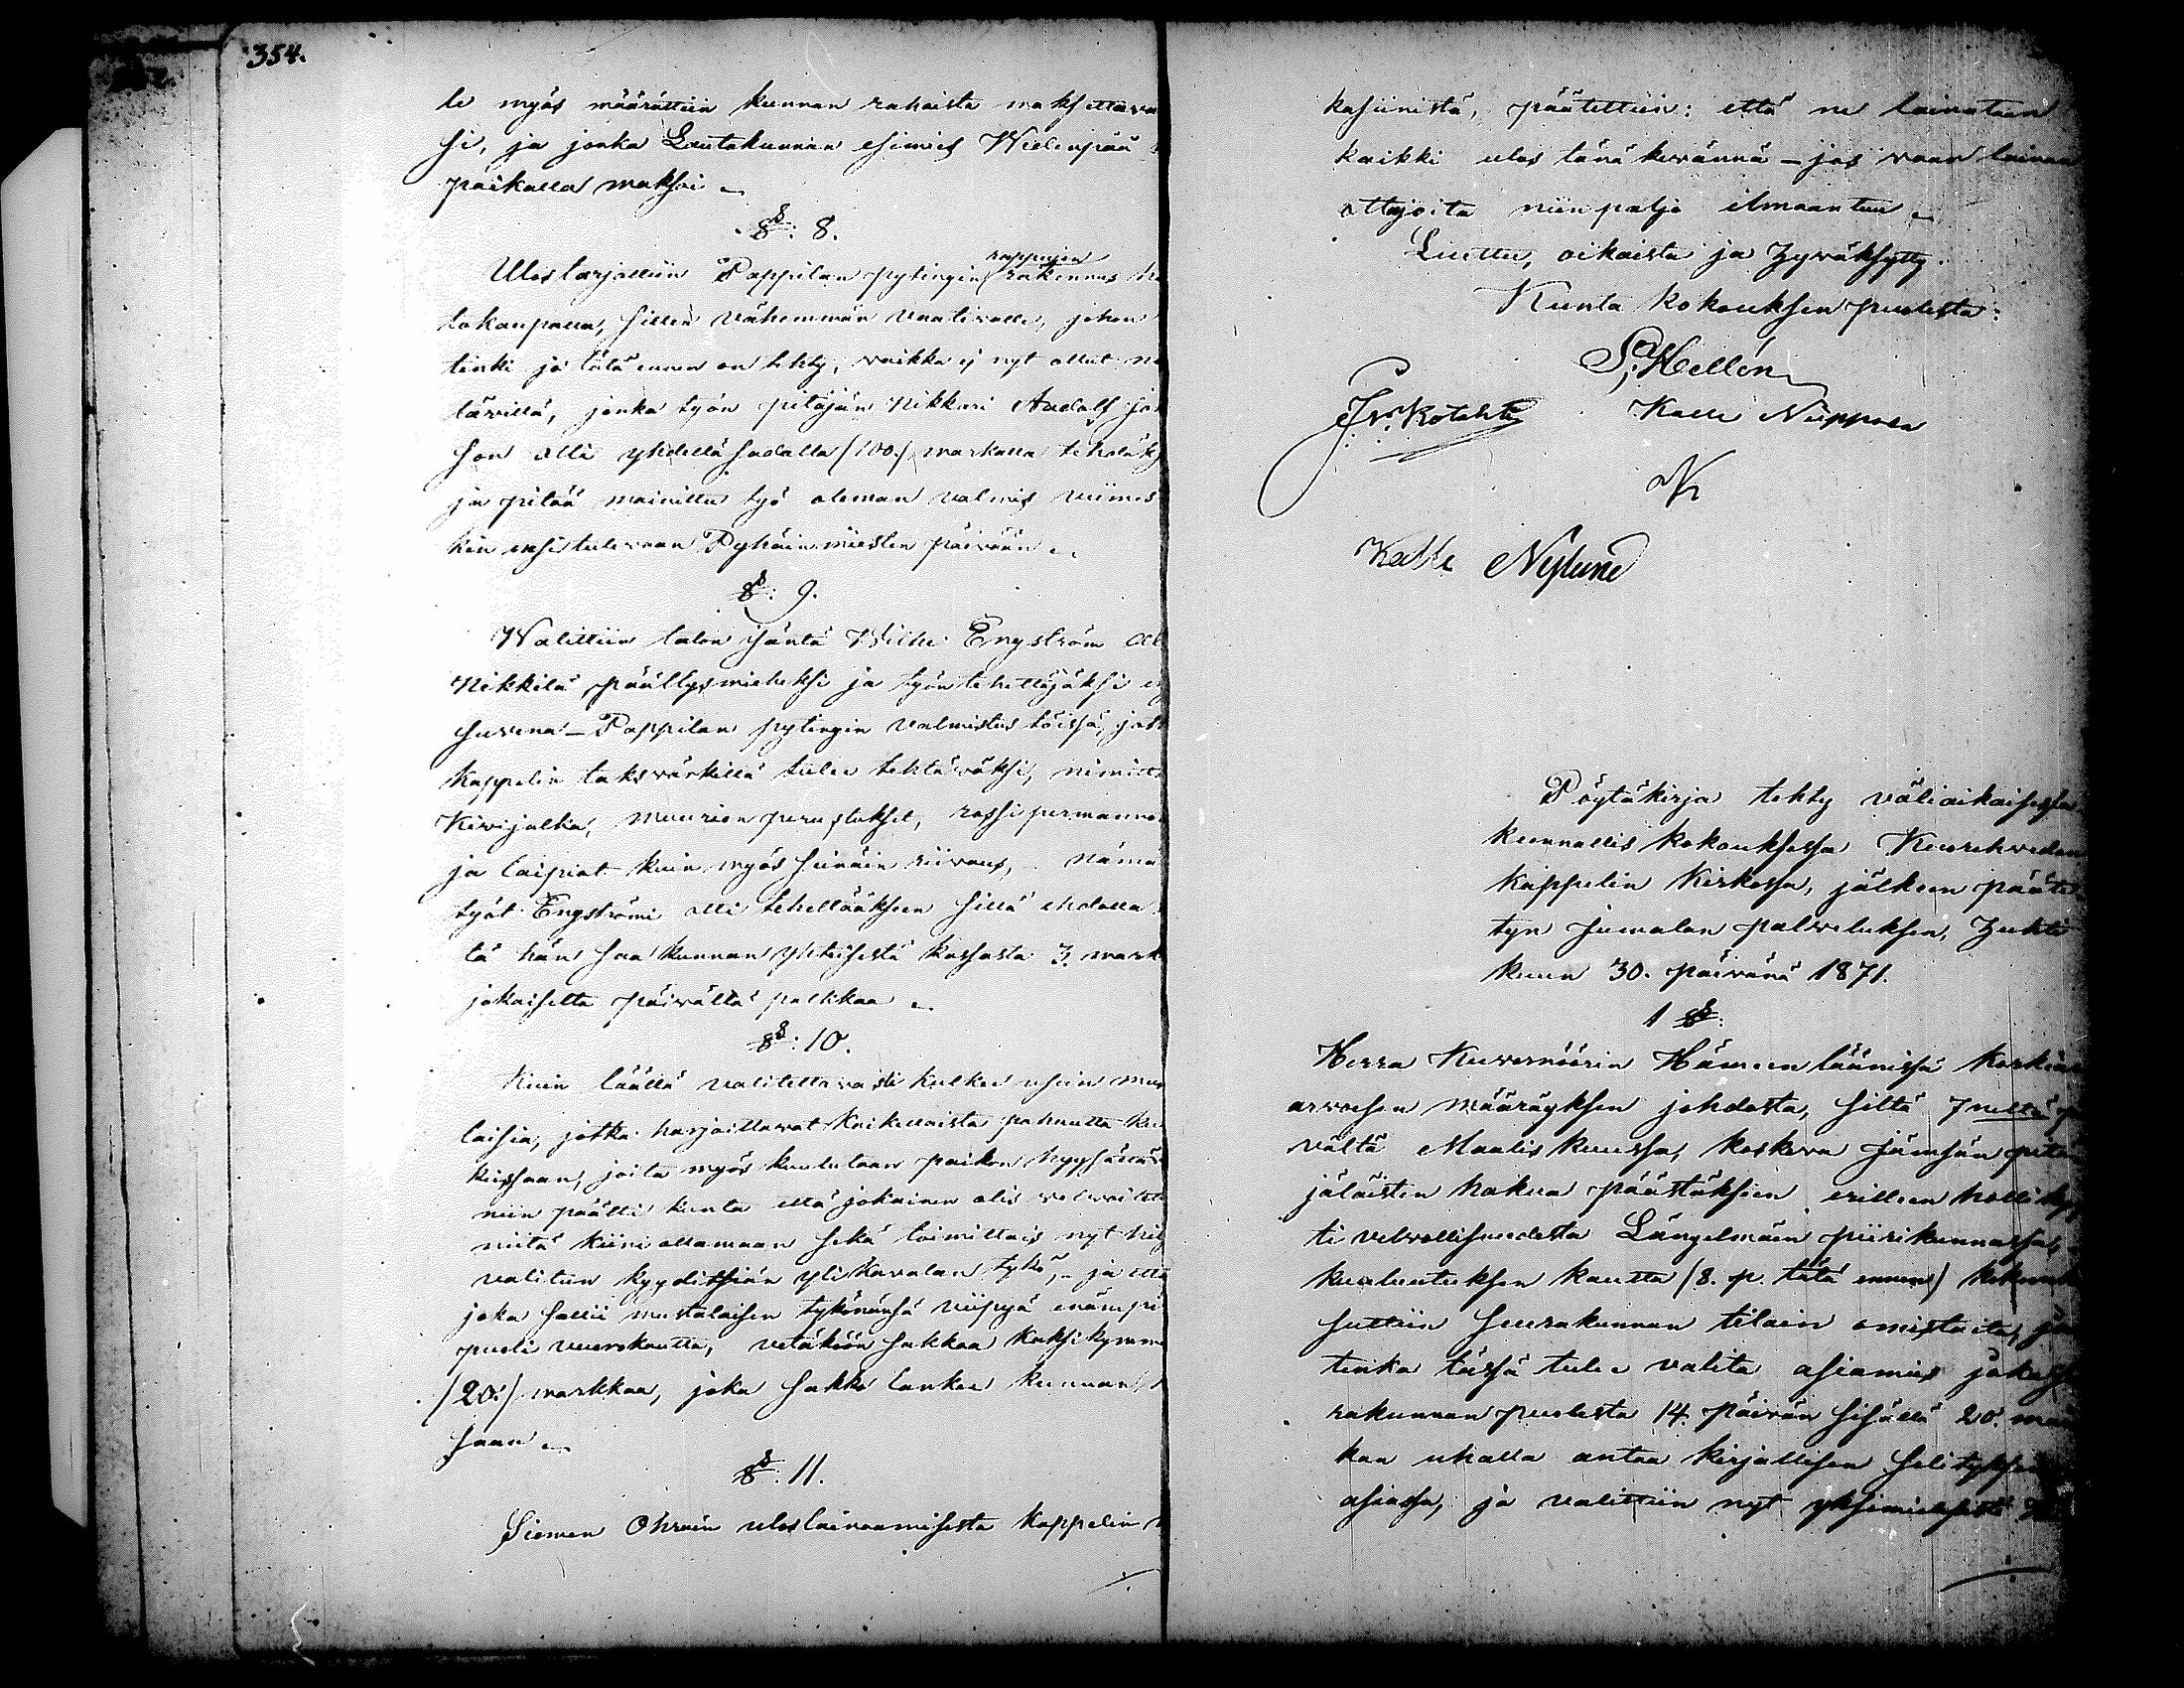 354.
le myös määrättiin kunnan rahaista maksettawa
si, ja jonka Lautakunnan esimies Wielenpää
paikalla maksoi.
§: 8.
Ulostarjottiin Pappilan pytingin rappujen rakennus
tokaupalla, sillen vähemmän vaativalle, johon
tinki jo tätä ennen on tehty, vaikka ej nyt ollut
tävillä, jonka työn pitäjän Nikkari Andolf
son otti yhdellä sadalla (100:) markalla tehdäks
ja pitää mainittu työ oleman valmis viimes
kin ensitulewaan Pyhäinmiesten päivään.
§: 9.
Walittiin talon isäntä Wilhe Engström
Nikkilä päällysmieheksi ja työn tehettäjäksi
suvena – Pappilan pytingin valmistus töissä,
Kappelin taksvärkillä tulee tehtäwäksi, nimitt
Kivijalka, muurien perustukset, rossipermannot
ja laipiot kuin myös seinäin riivaus, – nämä
työt Engströmi otti tehettääkseen sillä ehdolla
tä hän saa kunnan yhteisestä kassasta 3. mark
jokaiselta päivältä palkkaa.
§: 10.
Kuin täällä valitettavasti kulkee usein mus
laisia, jotka harjoittavat kaikellaista pahuutta
kussaan, joita myös kuulutaan paikon hyysättäv
niin päätti kunta että jokainen olis velwoitettu
niitä kiiniottamaan sekä toimittais nyt
valitun kyyditsiän yli Kavalan tykö, – ja että
joka sallii mustalaisen tykönänsä viipyä enämpi
puoli vuorokautta, vetäköön sakkoa kaksikymme
(20:) markkaa, joka sakko lankee kunnan
saan.
§: 11.
Siemen Ohrain uloslainaamisesta Kappelin
kasiinistä, päätettiin: että ne lainataan
kaikki ulos tänä kevännä – jos vaan lainan
ottajoita niinpaljo ilmaantuu.
Luettu, oikaistu ja hyväksytty.
Kunta kokouksen puolesta:
S; Hellén
Kalle Niippola
Kalle Nylund
Pöytäkirja tehty väliaikaisessa
kunnallis kokouksessa Kuorehveden
Kappelin Kirkossa, jälkeen pääte
tyn jumalan palveluksen, Huhti
kuun 30. päivänä 1871.
1 §:
Herra Kuvernöörin Hämeen läänissä korkia
arvoisen määräyksen johdosta, siltä 7neltä
vältä Maaliskuussa, koskeva Jämsän pitä
jäläisten hakua päästäksen erilleen holliky
ti velvollisuudesta Längelmäen piirikunnassa,
kuulutuksen kautta (8. p. tätä ennen) kokoon
suttiin Seurakunnan tilain omistaita,
tenka tässä tulee valita asiamies joka
rakunnan puolesta 14. päivän sisällä 20. mar
kan uhalla antaa kirjallisen selityksen
asiassa, ja valittiin nyt yksimielisesti